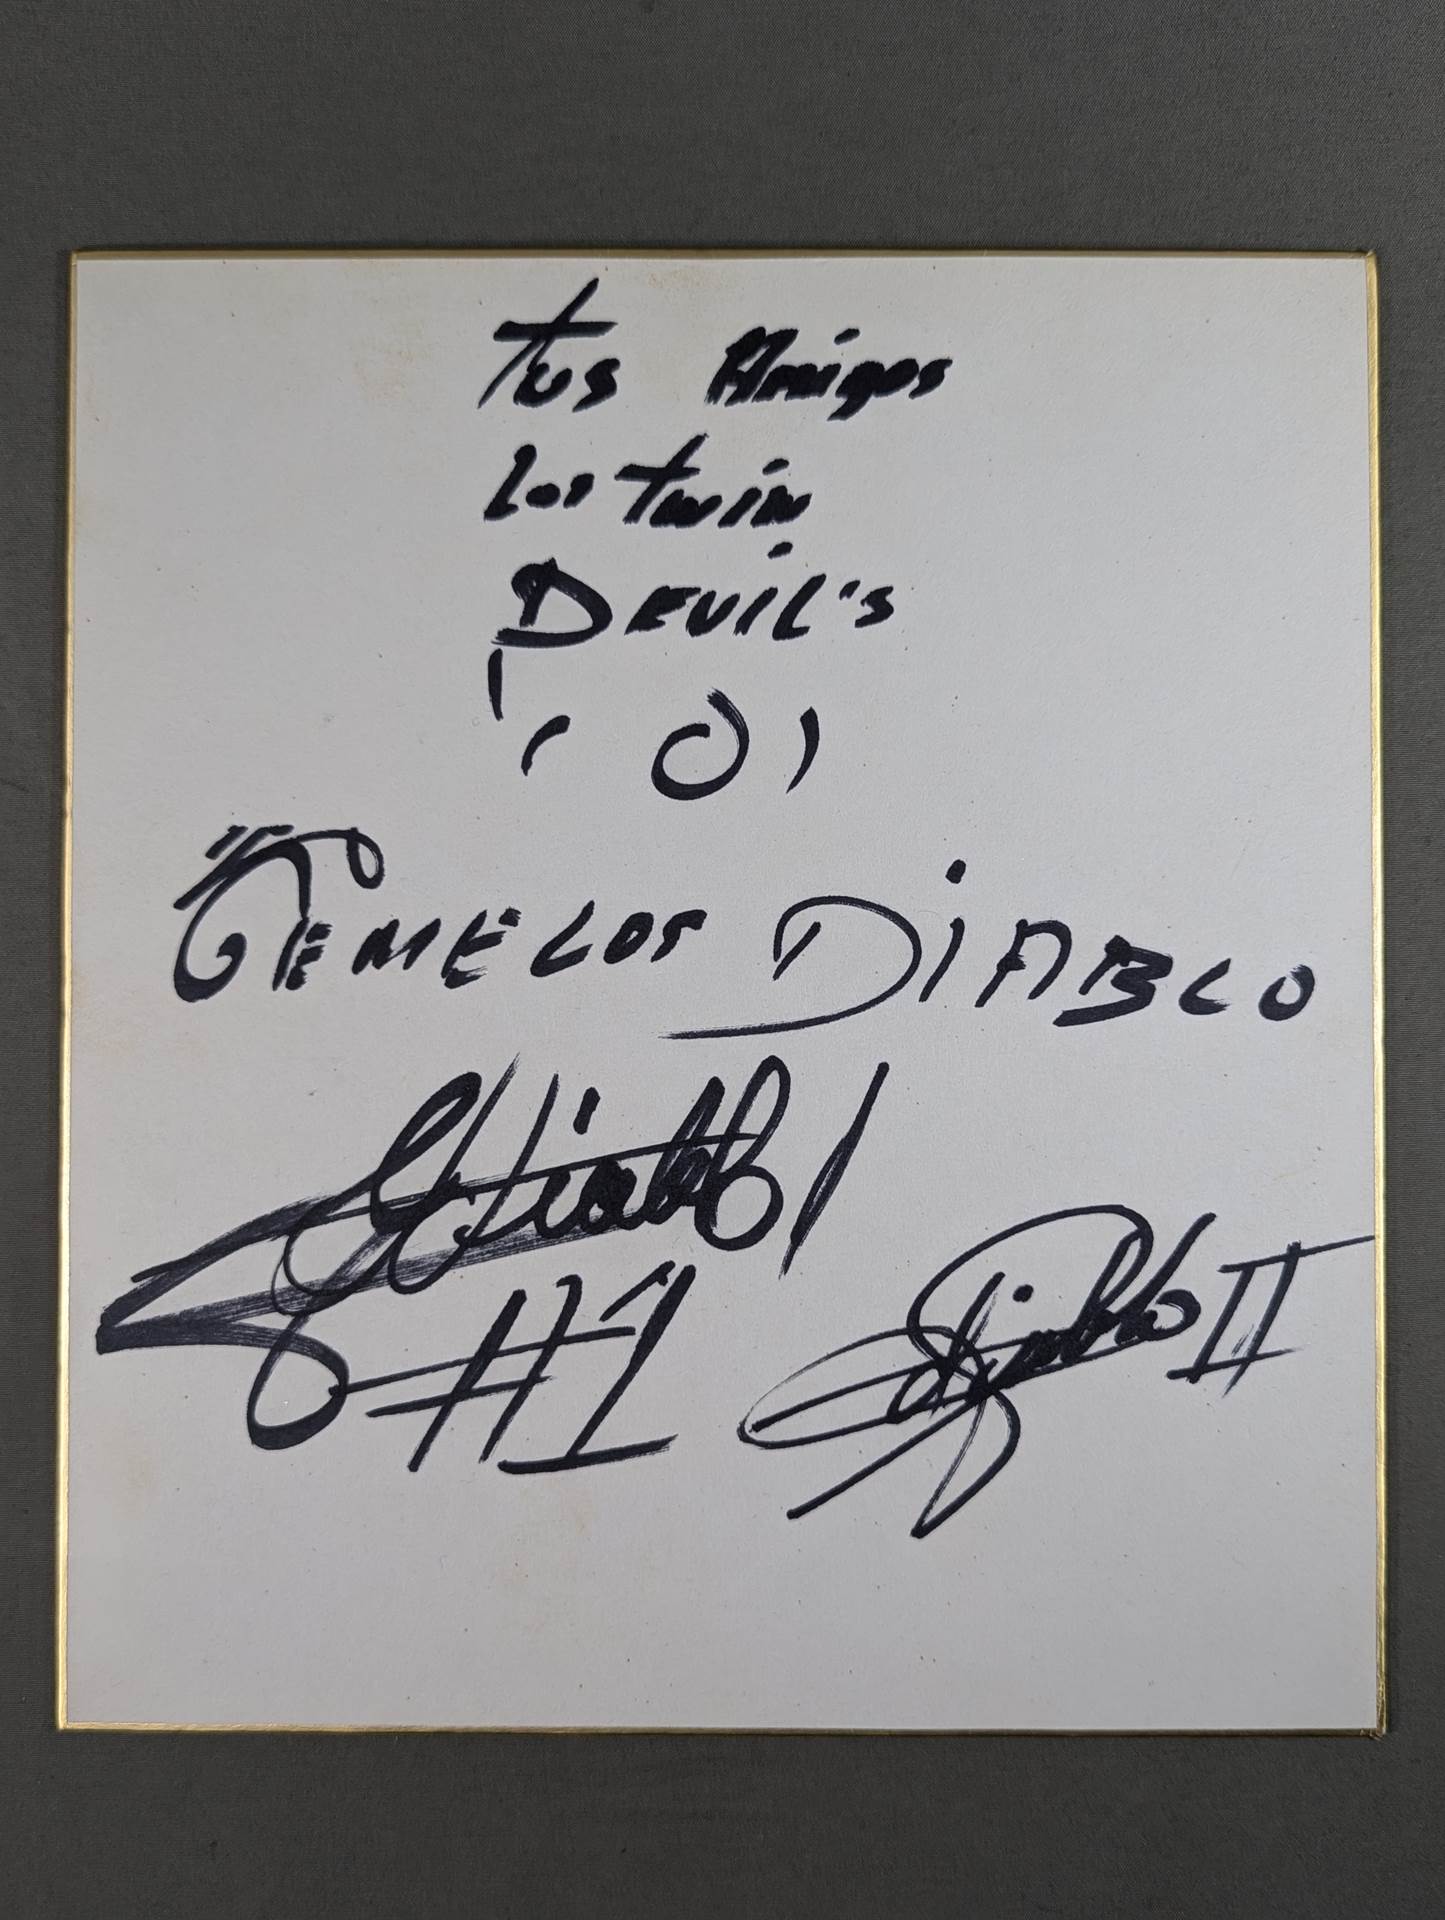 Tus Amigos
Los Twin
DEVIL'S
"O"
GEMELOS DIABLO
G. Diablo I
#1
G. Diablo II